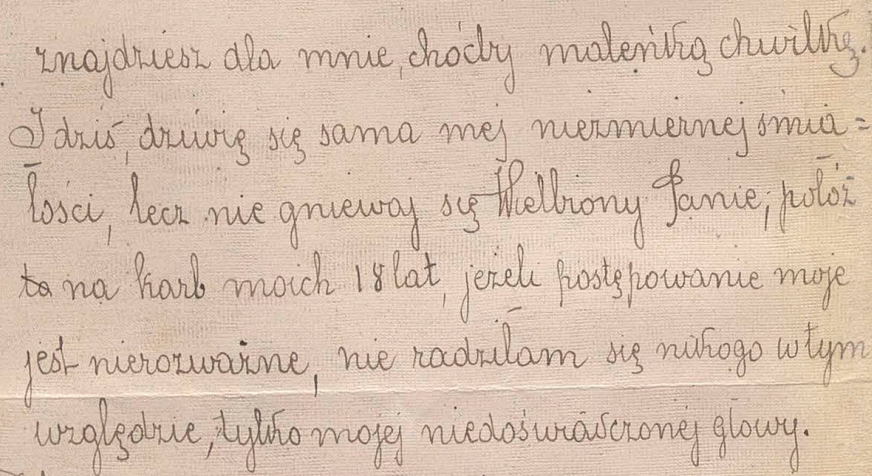 znajdziesz dla mnie, choćby maleńką chwilkę.
I dziś, dziwię się sama mej niezmiernej śmia=
łości, lecz nie gniewaj się Wielbiony Panie, połóż
to na karb moich 18 lat, jeżeli postępowanie moje
jest nierozważne, nie radziłam się nikogo w tym
względzie, tylko mojej niedoświadczonej głowy.